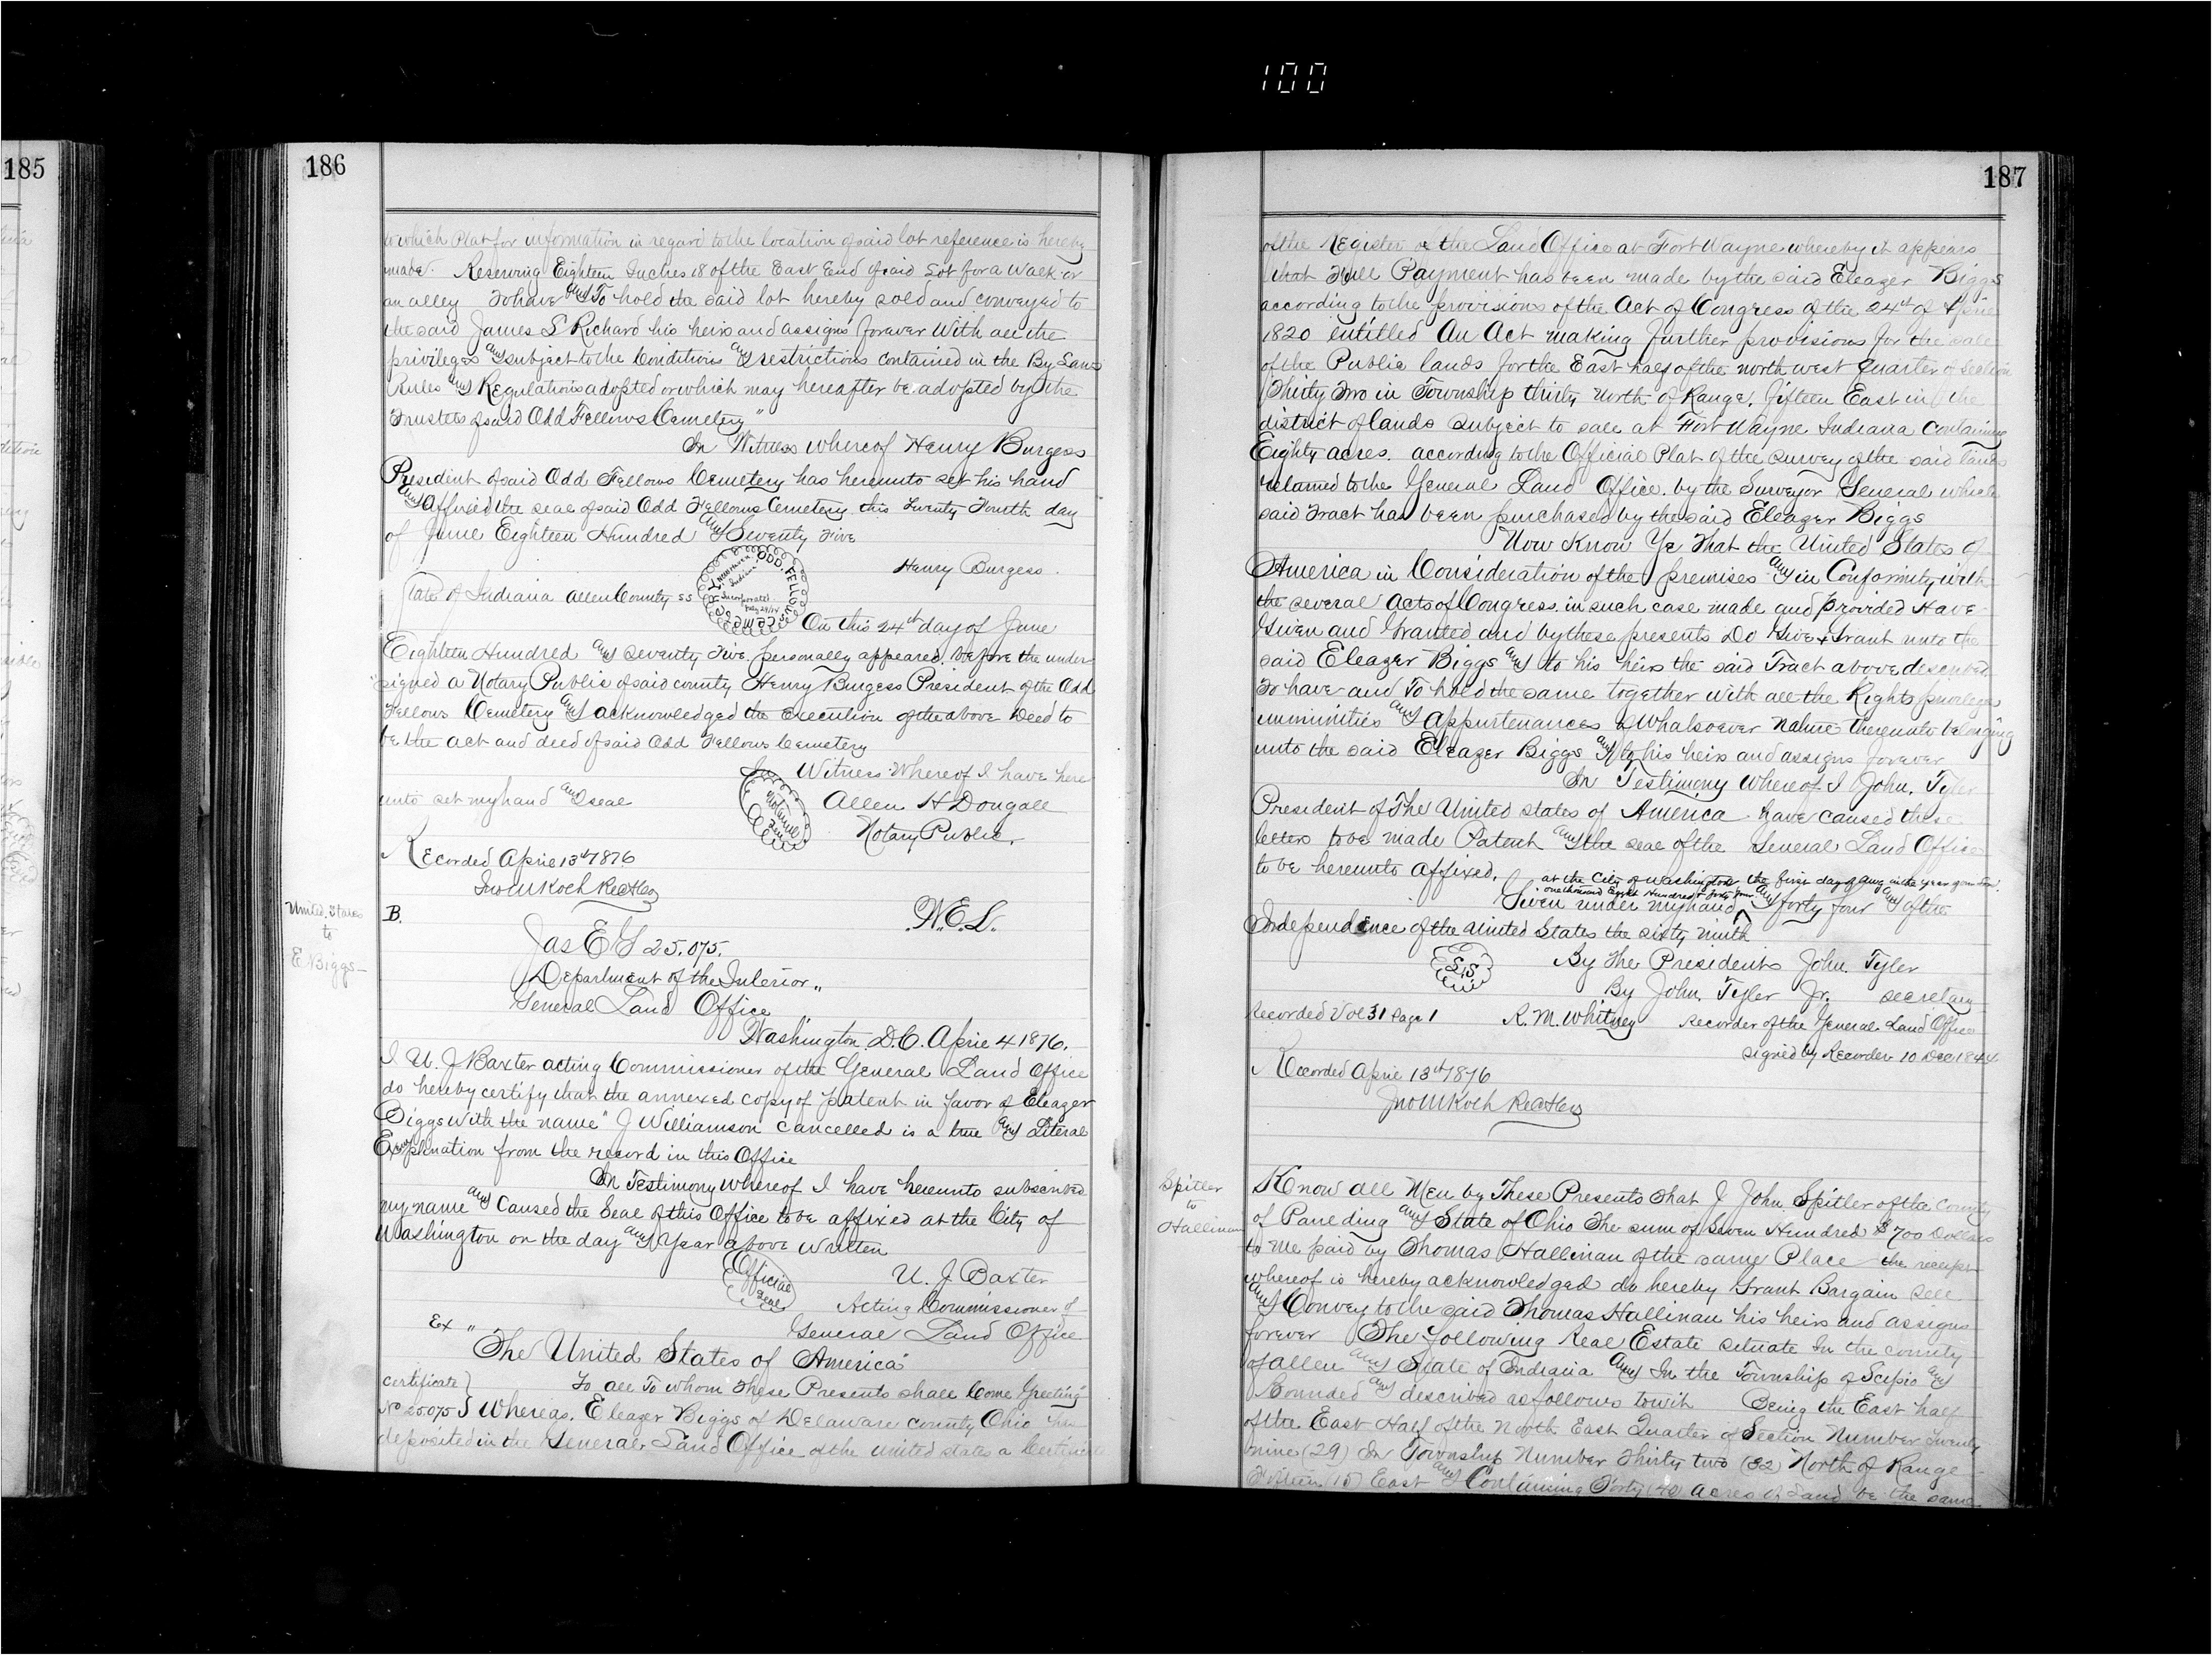 100
185
186
to which Plat for information in regard to the location of said lot reference is hereby
made. Reserving Eighteen Inches 18 of the East End of said Lot for a Walk or
an alley To have and To hold the said lot hereby sold and conveyed to
the said James S Richard his heirs and assigns forever With all the
privileges and subject to the Conditions and restrictions contained in the By Laws
Rules and Regulations adopted or which may hereafter be adopted by the
Trustees of said Odd Fellows Cemetery"
In Witness whereof Henry Burgess
President of said Odd Fellows Cemetery has hereunto set his hand
and Affixed the seal of said Odd Fellows Cemetery this Twenty Fourth day
of June Eighteen Hundred and Seventy Five
Henry Burgess
State of Indiana Allen County ss
On this 24th day of June
Eighteen Hundred and Seventy Five personally appeared before the under
signed a Notary Public of said county Henry Burgess President of the Odd
Fellows Cemetery and acknowledged the Execution of the above Deed to
be the act and deed of said Odd Fellows Cemetery
In Witness Whereof I have here
unto set my hand and seal
Allen H Dougall
Notary Public.
Recorded April 13th 1876
Jno M Koch RecAlCo
United States
to
E Biggs
B. N.E.L.
Jas E G 25.075.
Department of the Interior "
General Land Office
Washington D.C. April 4 1876.
I U. J Baxter acting Commissioner of the General Land Office
do hereby certify that the annexed copy of patent in favor of Eleazer
Biggs with the name "J Williamson cancelled is a true and Literal
Exemplification from the record in this Office
In Testimony whereof I have hereunto subscribed
my name and Caused the Seal of this Office to be affixed at the City of
Washington on the day and Year above written
Official Seal
U. J Baxter
Acting Commissioner of
General Land Office
Ex "
The United States of America"
Certificate } To all To whom These Presents shall Come Greeting
No 25.075 } Whereas. Eleazer Biggs of Delaware county Ohio has
deposited in the General Land Office of the United States a Certificate
187
of the Register of the Land Office at Fort Wayne whereby it appears
that Full Payment has been made by the said Eleazer Biggs
according to the provisions of the Act of Congress of the 24th of April
1820 entitled An Act making further provisions for the sale
of the Public lands for the East half of the north west quarter of section
Thirty Two in Township thirty North of Range. fifteen East in the
district of lands subject to sale at Fort Wayne Indiana Containing
Eighty acres. according to the Official Plat of the survey of the said lands
returned to the General Land Office. by the Surveyor General which
said Tract has been purchased by the said Eleazer Biggs
Now Know Ye That the United States of
America in Consideration of the premises and in Conformity with
the several Acts of Congress in such case made and provided Have
Given and Granted and by these presents Do Give & Grant unto the
said Eleazer Biggs and to his heirs the said Tract above described
To have and To hold the same together with all the Rights privileges
immunities and Appurtenances of whatsoever nature thereunto belonging
unto the said Eleazer Biggs and to his heirs and assigns forever
In Testimony Whereof I John. Tyler
President of The United States of America have caused these
letters to be made Patent and the seal of the General Land Office
to be hereunto affixed.
at the City of Washington the first day of Aug in the year of our Lord
one thousand Eight Hundred & forty four
Given under my hand and forty four and of the
Independence of the United States the sixty ninth
S.S
By the President John Tyler
By John. Tyler Jr. secretary
Recorded Vol 31 page 1 R. M. Whitney Recorder of the General Land Office
signed by Recorder 10 Dec 1844
Recorded April 13th 1876
Jno M Koch RecAlCo
Spitler
to
Hallinan
Know all Men by These Presents That I John Spitler of the County
of Paulding and State of Ohio The sum of Seven Hundred $700 Dollars
to me paid by Thomas Hallinan of the same Place the receipt
whereof is hereby acknowledged do hereby Grant Bargain Sell
and Convey to the said Thomas Hallinan his heirs and assigns
forever The following Real Estate situate In the county
of Allen and State of Indiana and In the Township of Scipio and
Bounded and described as follows towit Being the East half
of the East Half of the North East Quarter of Section Number Twenty
nine (29) In Township Number Thirty two (32) North of Range
Fifteen (15) East and Containing Forty (40) acres of Land be the same